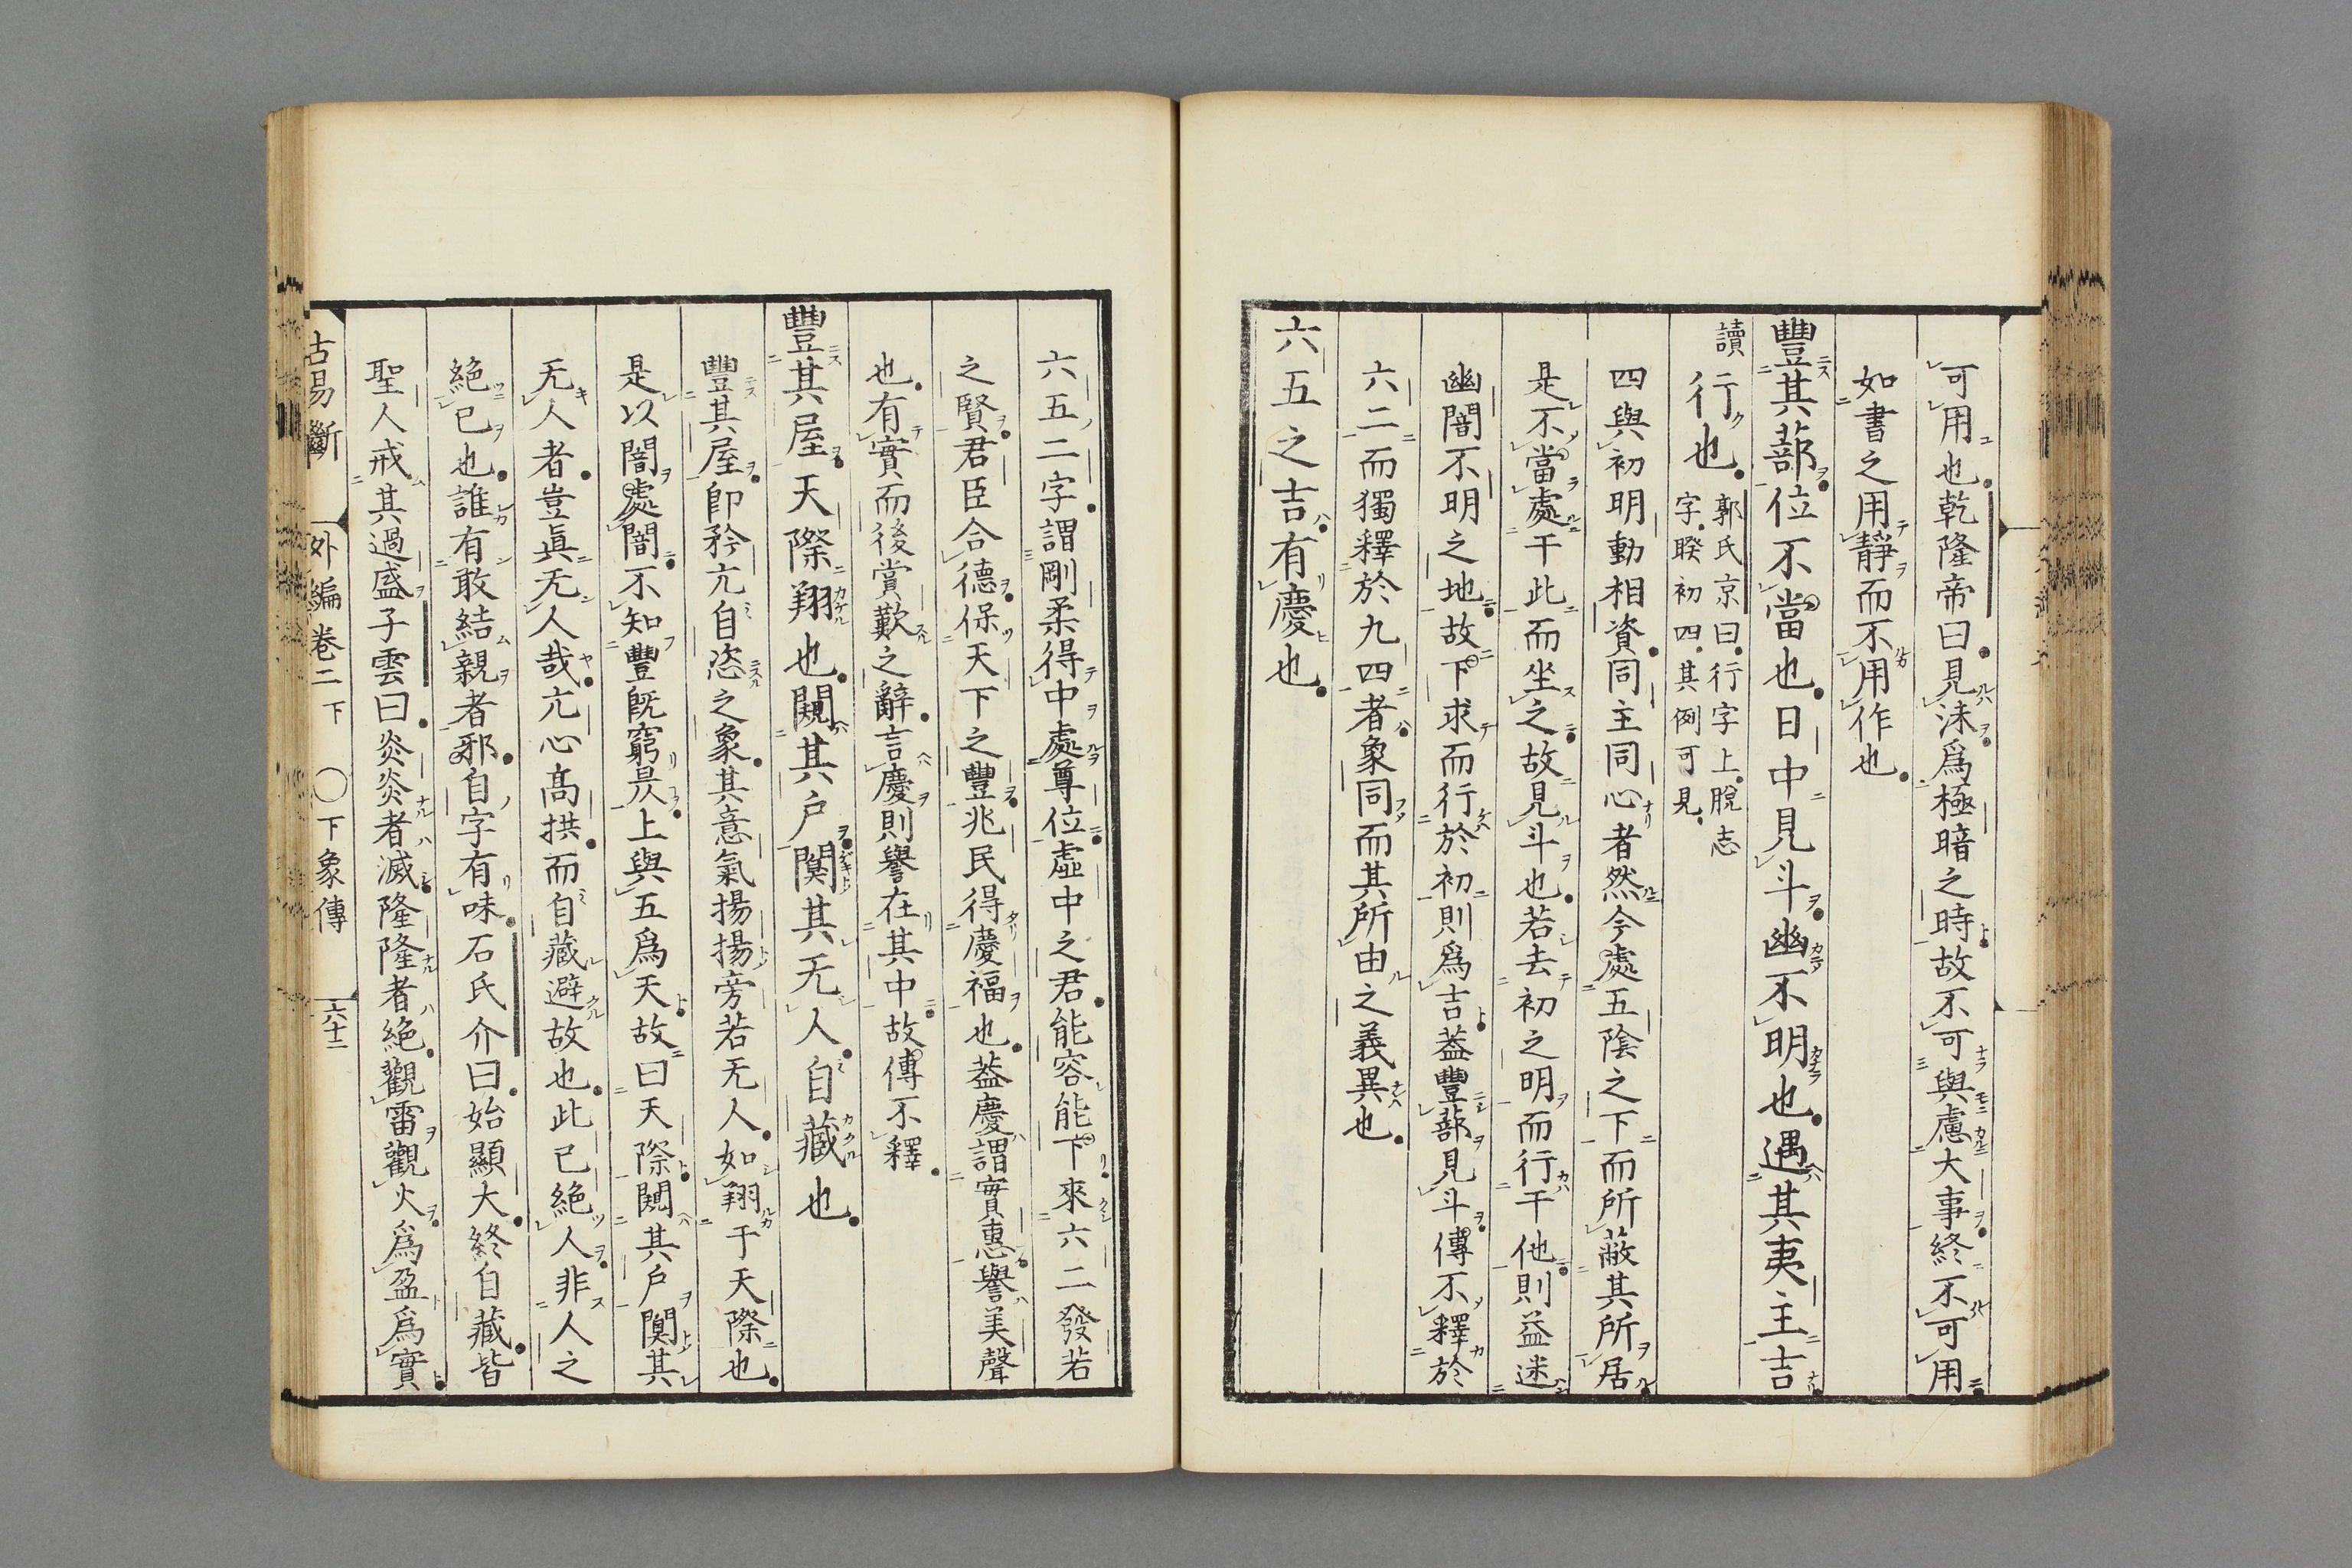 可用也乾隆帝曰見沬爲極暗之時故不可與慮大事終不可用
如書之用靜而不用作也
豐其蔀位不當也日中見斗幽不明也遇其夷主吉
讀
行也
郭氏京曰行字上脫志
字睽初四其例可見
四與初明動相資同主同心者然今處五陰之下而所蔽其所居
是不當處干此而坐之故見斗也若去初之明而行干他則益迷
幽闇不明之地故下求而行於初則爲吉蓋豐蔀見斗傳不釋於
六二而獨釋於九四者象同而其所由之義異也
六五之吉有慶也
六五二字謂剛柔得中處尊位虛中之君能容能下來六二發若
之賢君臣合德保天下之豐兆民得慶福也蓋慶謂實惠譽美聲
也有實而後賞歎之辭言慶則譽在其中故傳不釋
豐其屋天際翔也闚其戶闃其无人自藏也
豐其屋卽矜亢自恣之象其意氣揚揚旁若无人如翔于天際也
是以闇處闇不知豐旣窮昃上與五爲天故曰天際闚其戶闃其
无人者豈眞无人哉亢心高拱而自藏避故也此已絕人非人之
絕已也誰有敢結親者邪自字有味石氏介曰始顯大終自藏皆
聖人戒其過盛子雲曰炎炎者滅隆隆者絕觀雷觀火爲盈爲實
古易斷 外編卷二下 〇下象傳 六十二